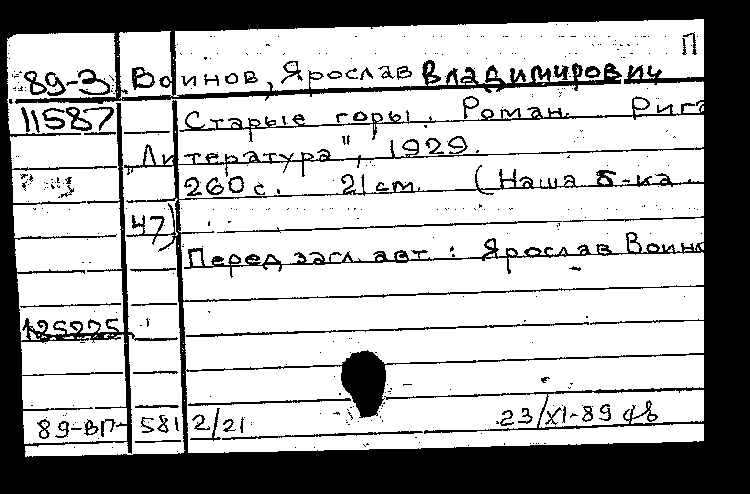 П
89-3 Воинов, Ярослав Владимирович
11587 Старые горы. Роман. Рига
„Литература", 1929.
260 с. 21 см. (Наша б-ка.
47)
Перед загл. авт.: Ярослав Воин
125225
89-ВП-5812/21 23/XI-89